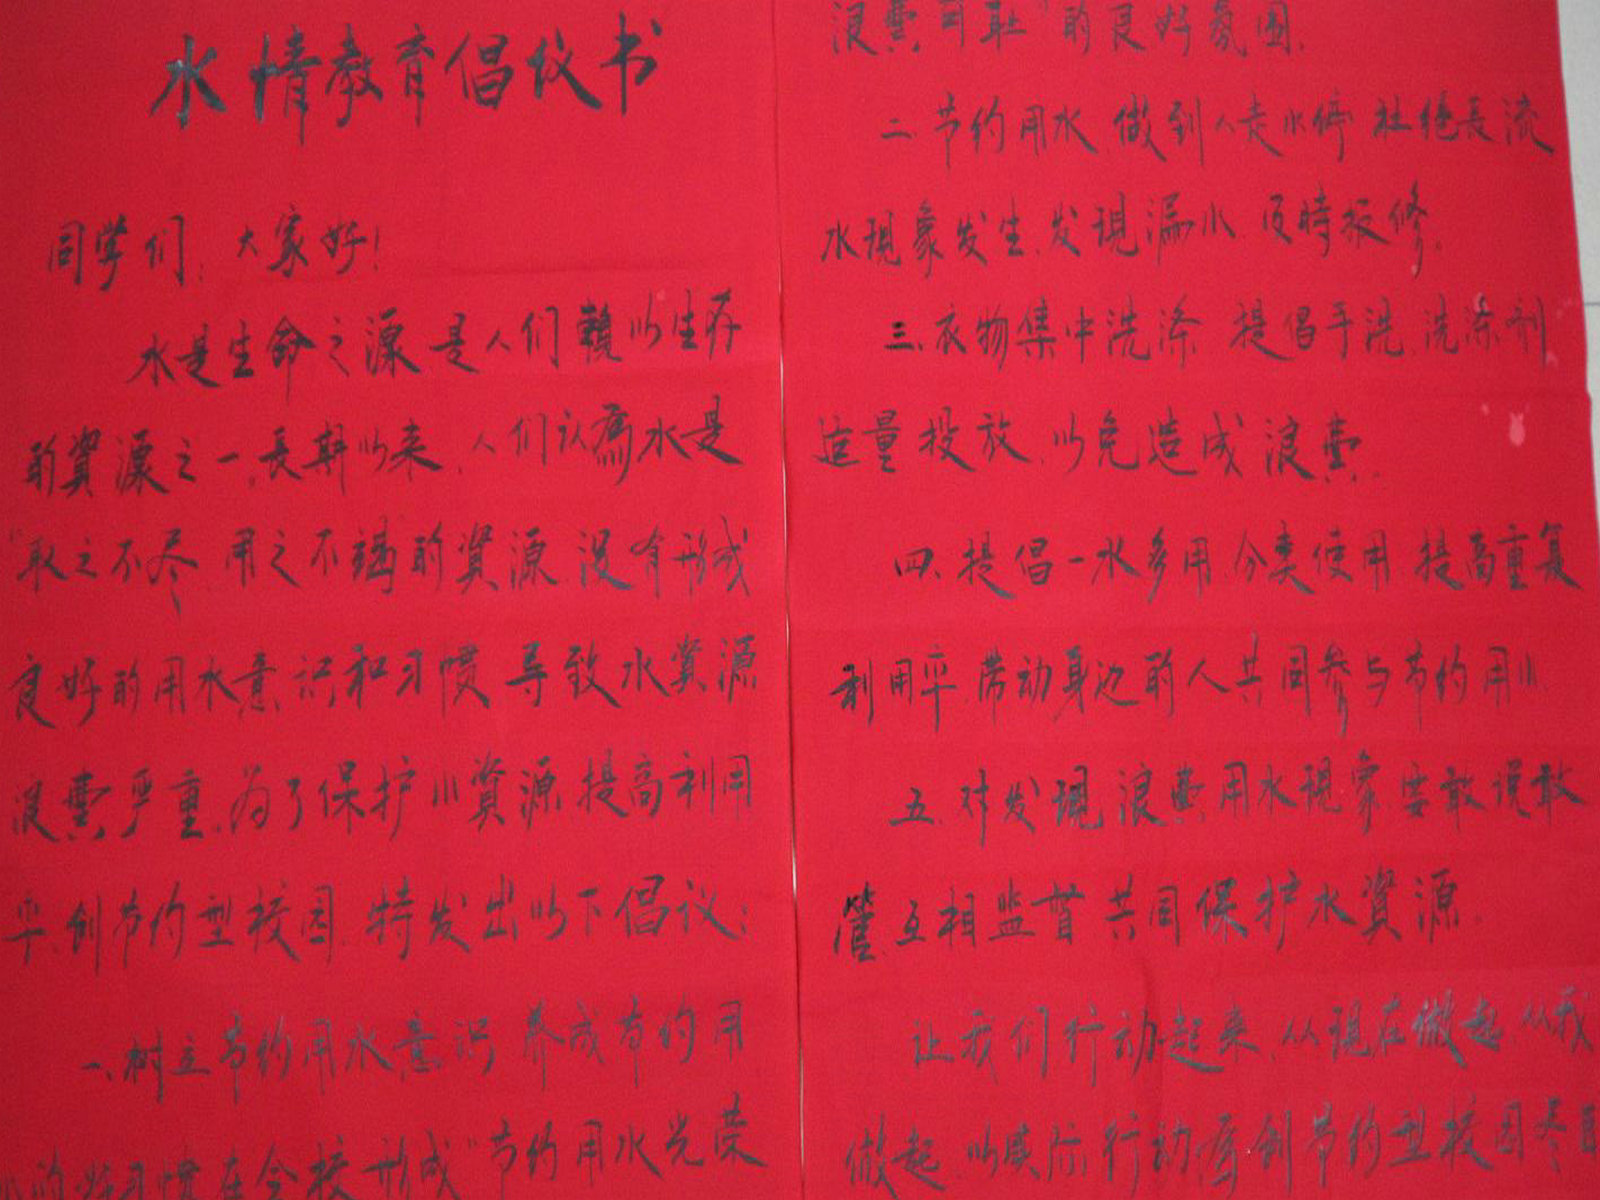 水情教育倡议书
同学们：大家好！
水是生命之源 是人们賴以生存
的資源之一。長期以来，人们认爲水是
“取之不尽 用之不竭的資源 没有形成
良好的用水意识和习惯 导致水資源
浪费严重。为了保护水資源 提高利用
率，创节约型校园，特发出以下倡议：
一、树立节约用水意识 养成节约用
水的好习惯 在全校形成“节约用水光荣
浪费可耻”的良好氛围，
二、节约用水 做到人走水停 杜绝長流
水現象发生，发現漏水 及時报修。
三、衣物集中洗涤 提倡手洗，洗涤剂
适量投放，以免造成浪费。
四、提倡一水多用，分类使用 提高重复
利用率，带动身边的人共同参与节约用水
五、对发現浪费用水現象，要敢说敢
管，互相监督 共同保护水資源。
让我们行动起来，从現在做起，从我
做起，以实际行动爲创节约型校园尽